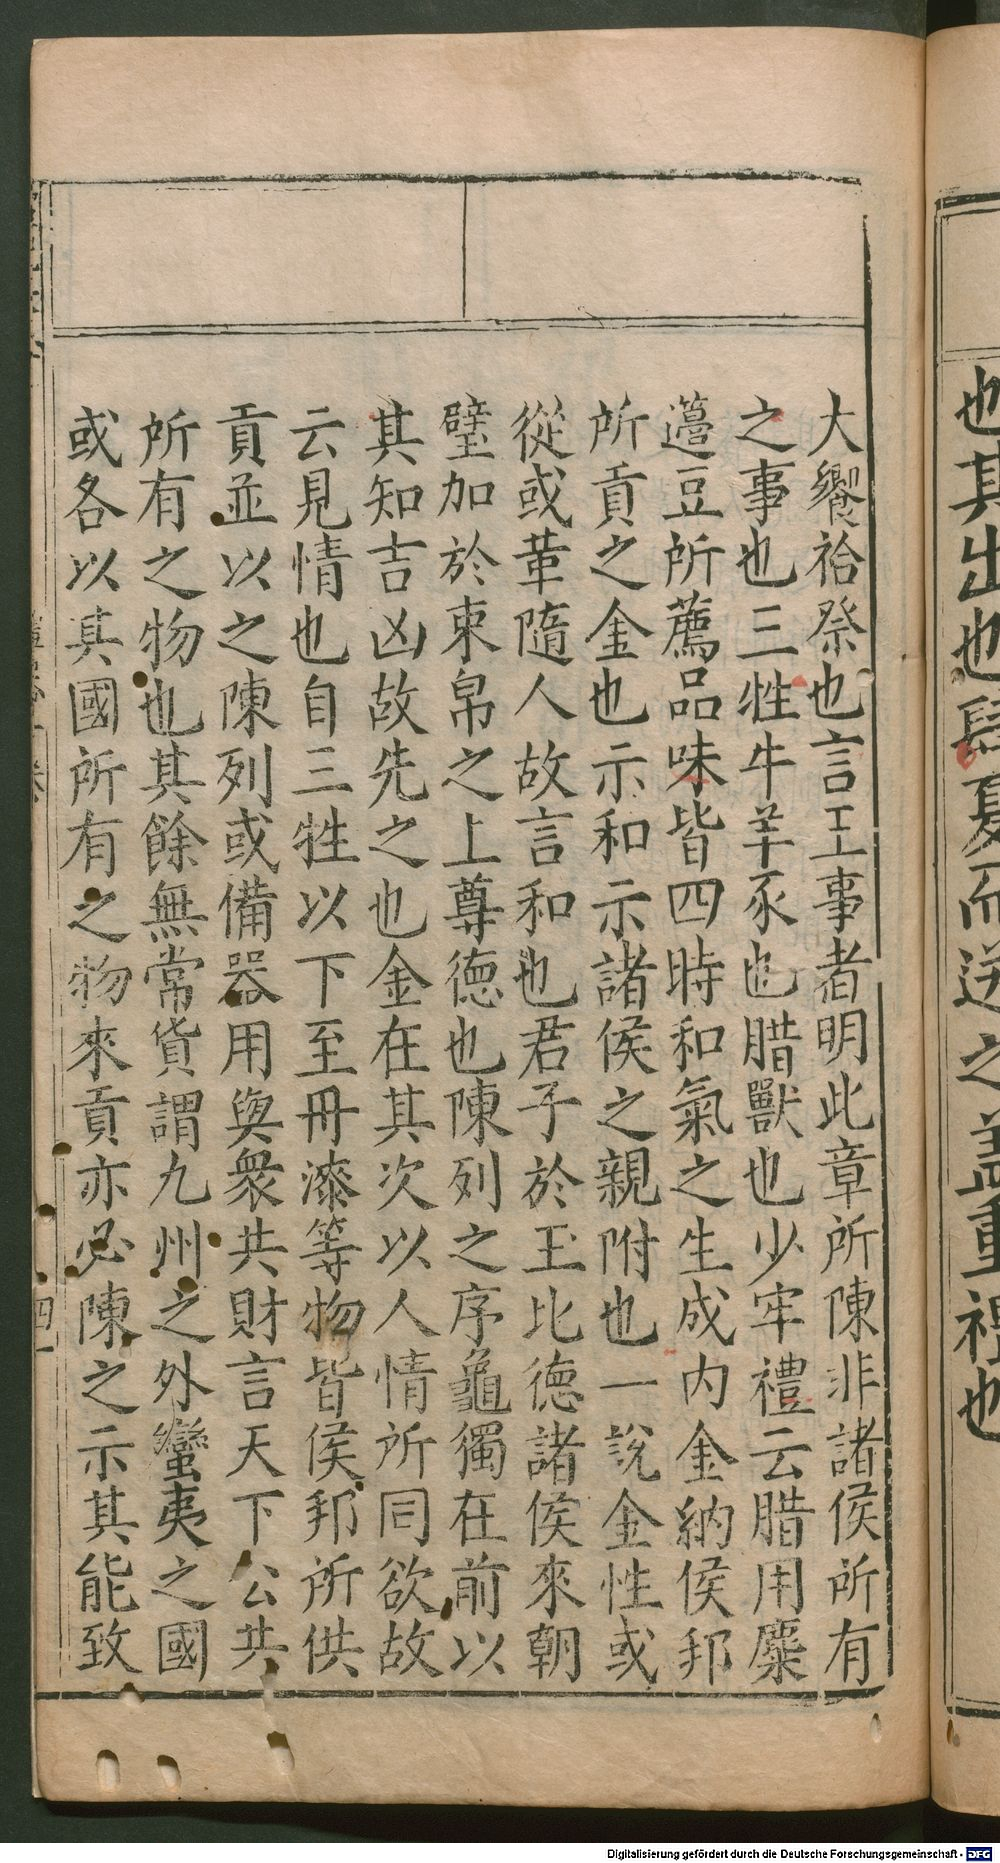 也其出也肆夏而送之蓋重禮也
大饗祫祭也言王事者明此章所陳非諸侯所有
之事也三牲牛羊豕也腊獸也少牢禮云腊用麋
籩豆所薦品味皆四時和氣之生成内金納侯邦
所貢之金也示和示諸侯之親附也一說金性或
從或革隨人故言和也君子於玉比德諸侯來朝
璧加於束帛之上尊德也陳列之序龜獨在前以
其知吉凶故先之也金在其次以人情所同欲故
云見情也自三牲以下至丹漆等物皆侯邦所供
貢並以之陳列或備器用與衆共財言天下公共
所有之物也其餘無常貨謂九州之外蠻夷之國
或各以其國所有之物來貢亦必陳之示其能致
Digitalisierung gefördert durch die Deutsche Forschungsgemeinschaft - DFG